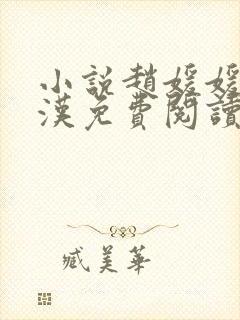 小說趙媛媛
漢免費閱讀
臧美華